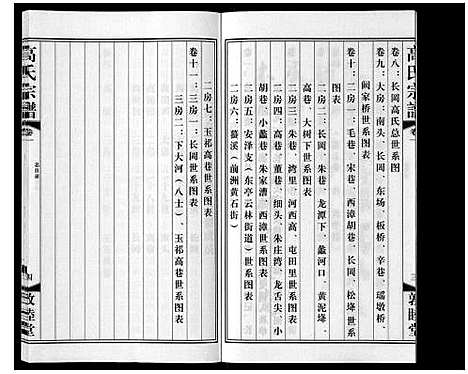 高氏宗譜
卷一
卷八：长冈高氏总世系图
卷九：大房：南头、长冈、东场、板桥、辛巷、瑶墩桥、
阙家桥世系图表
卷十：二房一：毛巷、宋巷、西漳胡巷、长冈、松埄世系
图表
二房二：长冈、朱巷、龙潭下、蠡河口、黄泥埄、
高巷、大树下世系图表
二房三：朱巷、湾里、河西高、屯田里世系图表
二房四：高巷、董巷、细头、朱庄湾、龙舌尖、小
胡巷、小蠡巷、朱家漕、西漳世系图表
二房五：安泽支（东亭云林街道）世系图表
二房六：𦈡溪（前洲黄石街）
二房七：玉祁高巷世系图表
卷十一：三房一：长冈世系图表
三房二：下大河（八士）、玉祁高巷世系图表
高氏宗譜
卷一
总目录
四
敦睦堂
敦睦堂